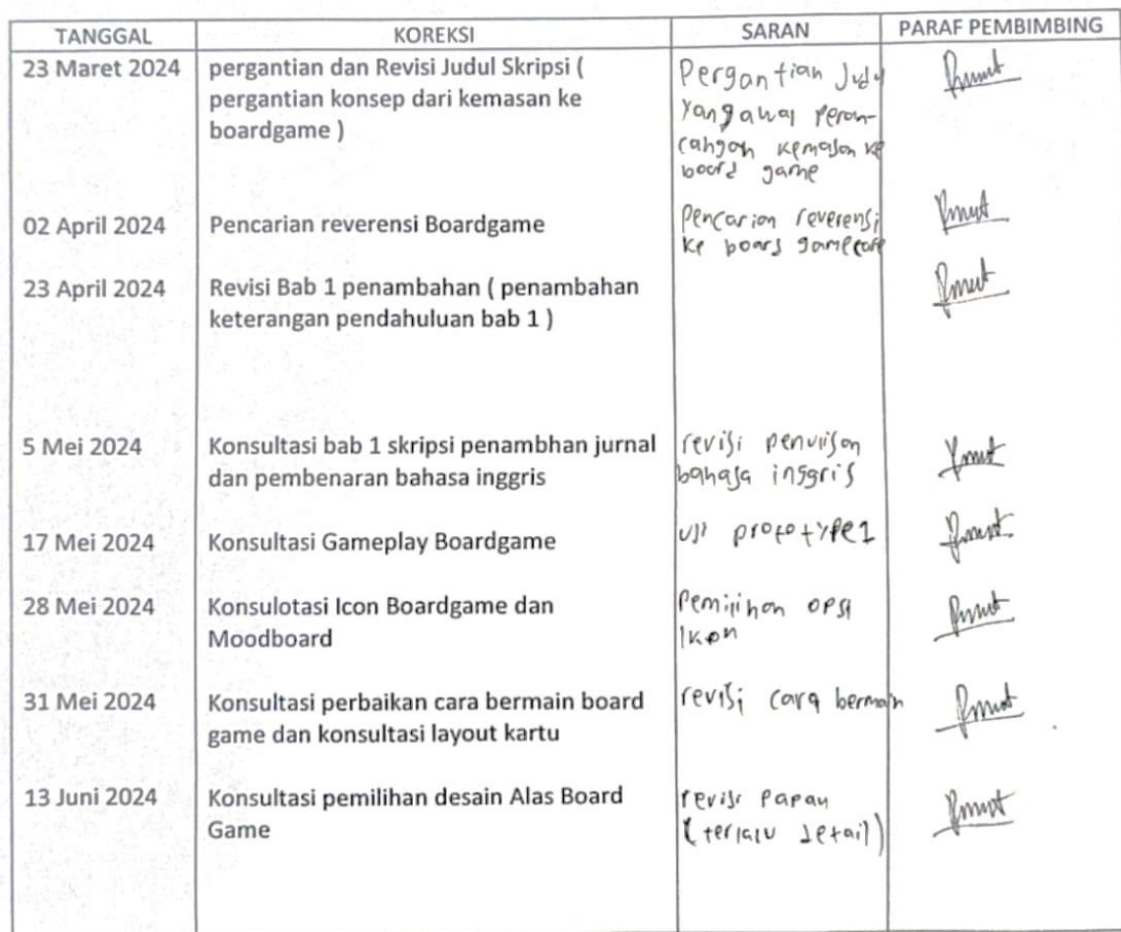 TANGGAL KOREKSI SARAN PARAF PEMBIMBING
23 Maret 2024 pergantian dan Revisi Judul Skripsi (
pergantian konsep dari kemasan ke
boardgame )
Pergantian Judul
yang awal peran-
cangan kemasan ke
board game
02 April 2024 Pencarian reverensi Boardgame
Pencarian reverensi
ke board game cafe
23 April 2024 Revisi Bab 1 penambahan ( penambahan
keterangan pendahuluan bab 1 )
5 Mei 2024 Konsultasi bab 1 skripsi penambhan jurnal
dan pembenaran bahasa inggris
revisi
bahasa inggris
17 Mei 2024 Konsultasi Gameplay Boardgame
uji prototype 1
28 Mei 2024 Konsulotasi Icon Boardgame dan
Moodboard
Pemilihan opsi
Ikon
31 Mei 2024 Konsultasi perbaikan cara bermain board
game dan konsultasi layout kartu
revisi cara bermain
13 Juni 2024 Konsultasi pemilihan desain Alas Board
Game
revisi papan
(terlalu detail)